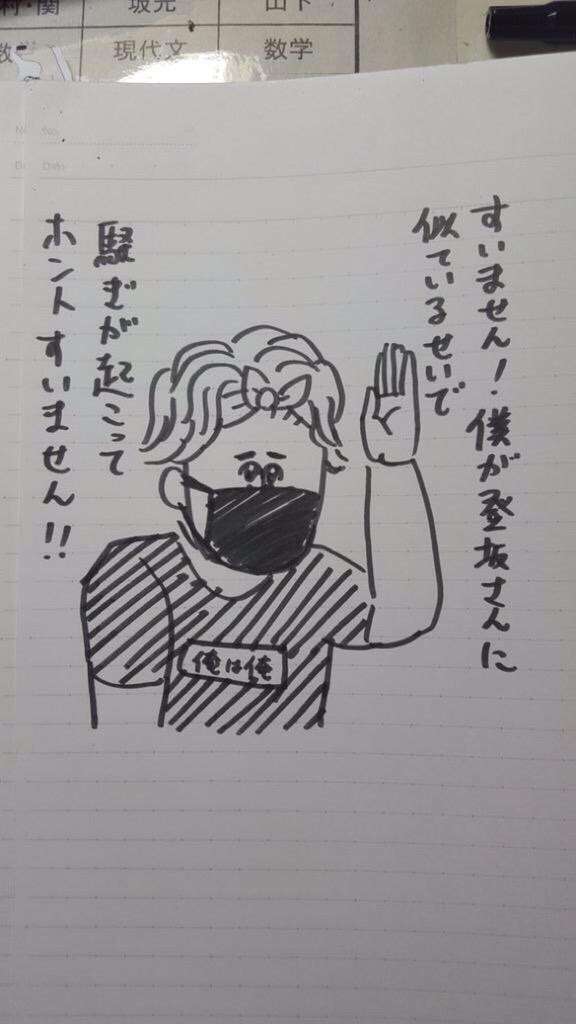 村・関
坂元
山下
数
現代文
数学
すいません!僕が登坂さんに
似ているせいで
騒ぎが起こって
ホントすいません!!
俺は俺